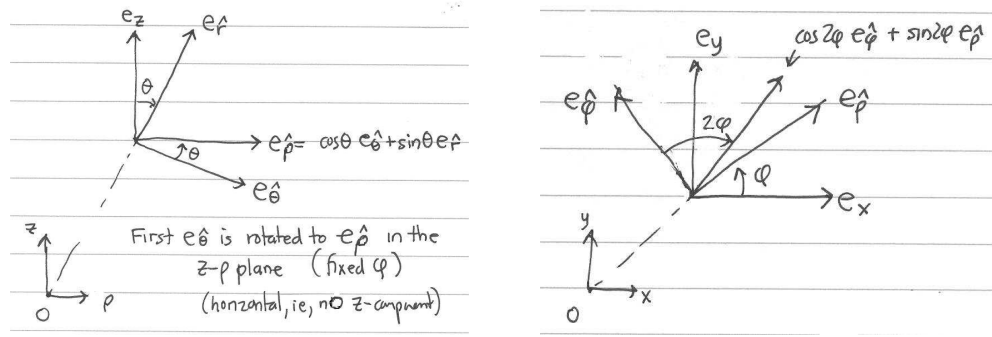 e_z
e_r̂
θ
e_ρ̂ = cosθ e_θ̂ + sinθ e_r̂
θ
e_θ̂
z
O
ρ
First e_θ̂ is rotated to e_ρ̂ in the
z-ρ plane (fixed φ)
(horizontal, ie, no z-component)
cos2φ e_φ̂ + sin2φ e_ρ̂
e_y
e_φ̂
e_ρ̂
2φ
φ
e_x
y
O
x